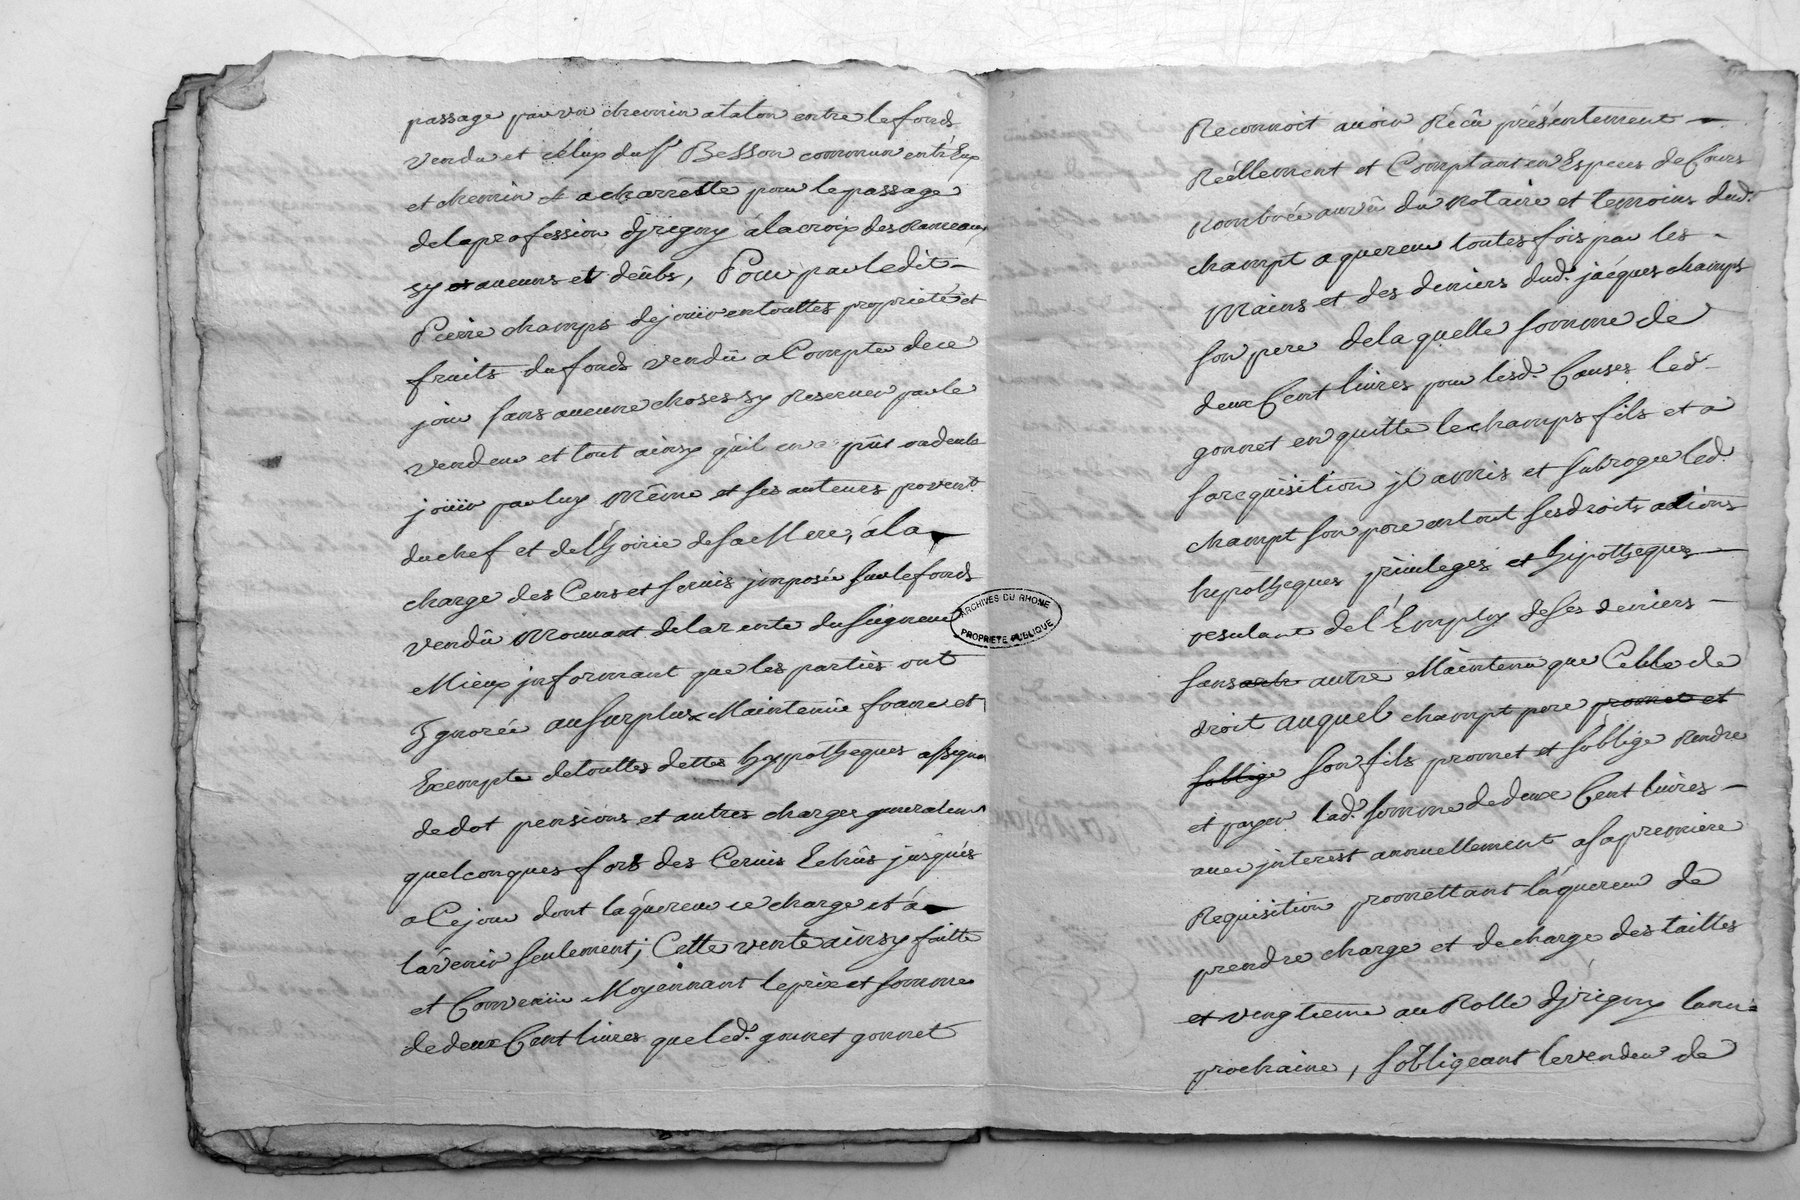 passage par un chemin atalon entre le fonds
vendu et celuy du Sr Besson commun entr'Eux
et chemin a charrette pour le passage
de la profession d'jrigny á la croix des Rameaux
sy aucuns et deûbs, Pour par ledit
Pierre champs de joüir en touttes proprieté et
fruits du fonds vendû a Compter de ce
jour sans aucune choses sy Reserver par le
vendeur et tout ainsy qu'il en a pût ou deub
joüir par luy Même et ses auteurs
du chef et de l'hoirie de sa Mere, á la
charge des Cens et servis jmposés sur le fonds
vendû Mouvant de la rente du seigneur
Mieux jnformant que les parties ont
Ignorée au surplus Maintenüe franc et
Exempte de touttes dettes hyppotheques
de dot pensions et autres charges generalem
quelconques fors des Cervis Echûs jusqués
a Ce jour dont l'aquereur ce charge et á
l'avenir seulement; Cette vente ainsy faitte
et Convenüe Moyennant le prix et somme
de deux Cent livres que led. gonnet gonnet
Reconnoit avoir Récû présentement
Réellement et Comptant en Especes de Cours
Nombrée aux vû du Notaire et temoins dud.
champt aquereur toutes fois par les
Mains et des deniers dud. jacques champs
son pere de la quelle somme de
deux Cent livres pour lesd. Causes led
gonnet en quitte le champs fils et a
sa requisition jl a mis et subrogée led.
champt son pere en tout ses droits actions
hepotheques privileges et hipotheques
resulant de l'Employ de ses deniers
sans autre Maintenu que Celle de
droit auquel champt pere promet et
soblige son fils promet et s'oblige Rendre
et payer lad. somme de deux Cent livres
avec jnterest annuellement a sa premiere
Requisition promettant l'áquereur de
prendre charge et decharge des tailles
et vengtieme au Rolle d'jrigny
prochaine, s'obligeant le vendeur de
ARCHIVES DU RHONE
PROPRIETE PUBLIQUE